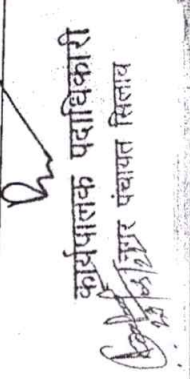 कार्यपालक पदाधिकारी
नगर पंचायत सिलाव